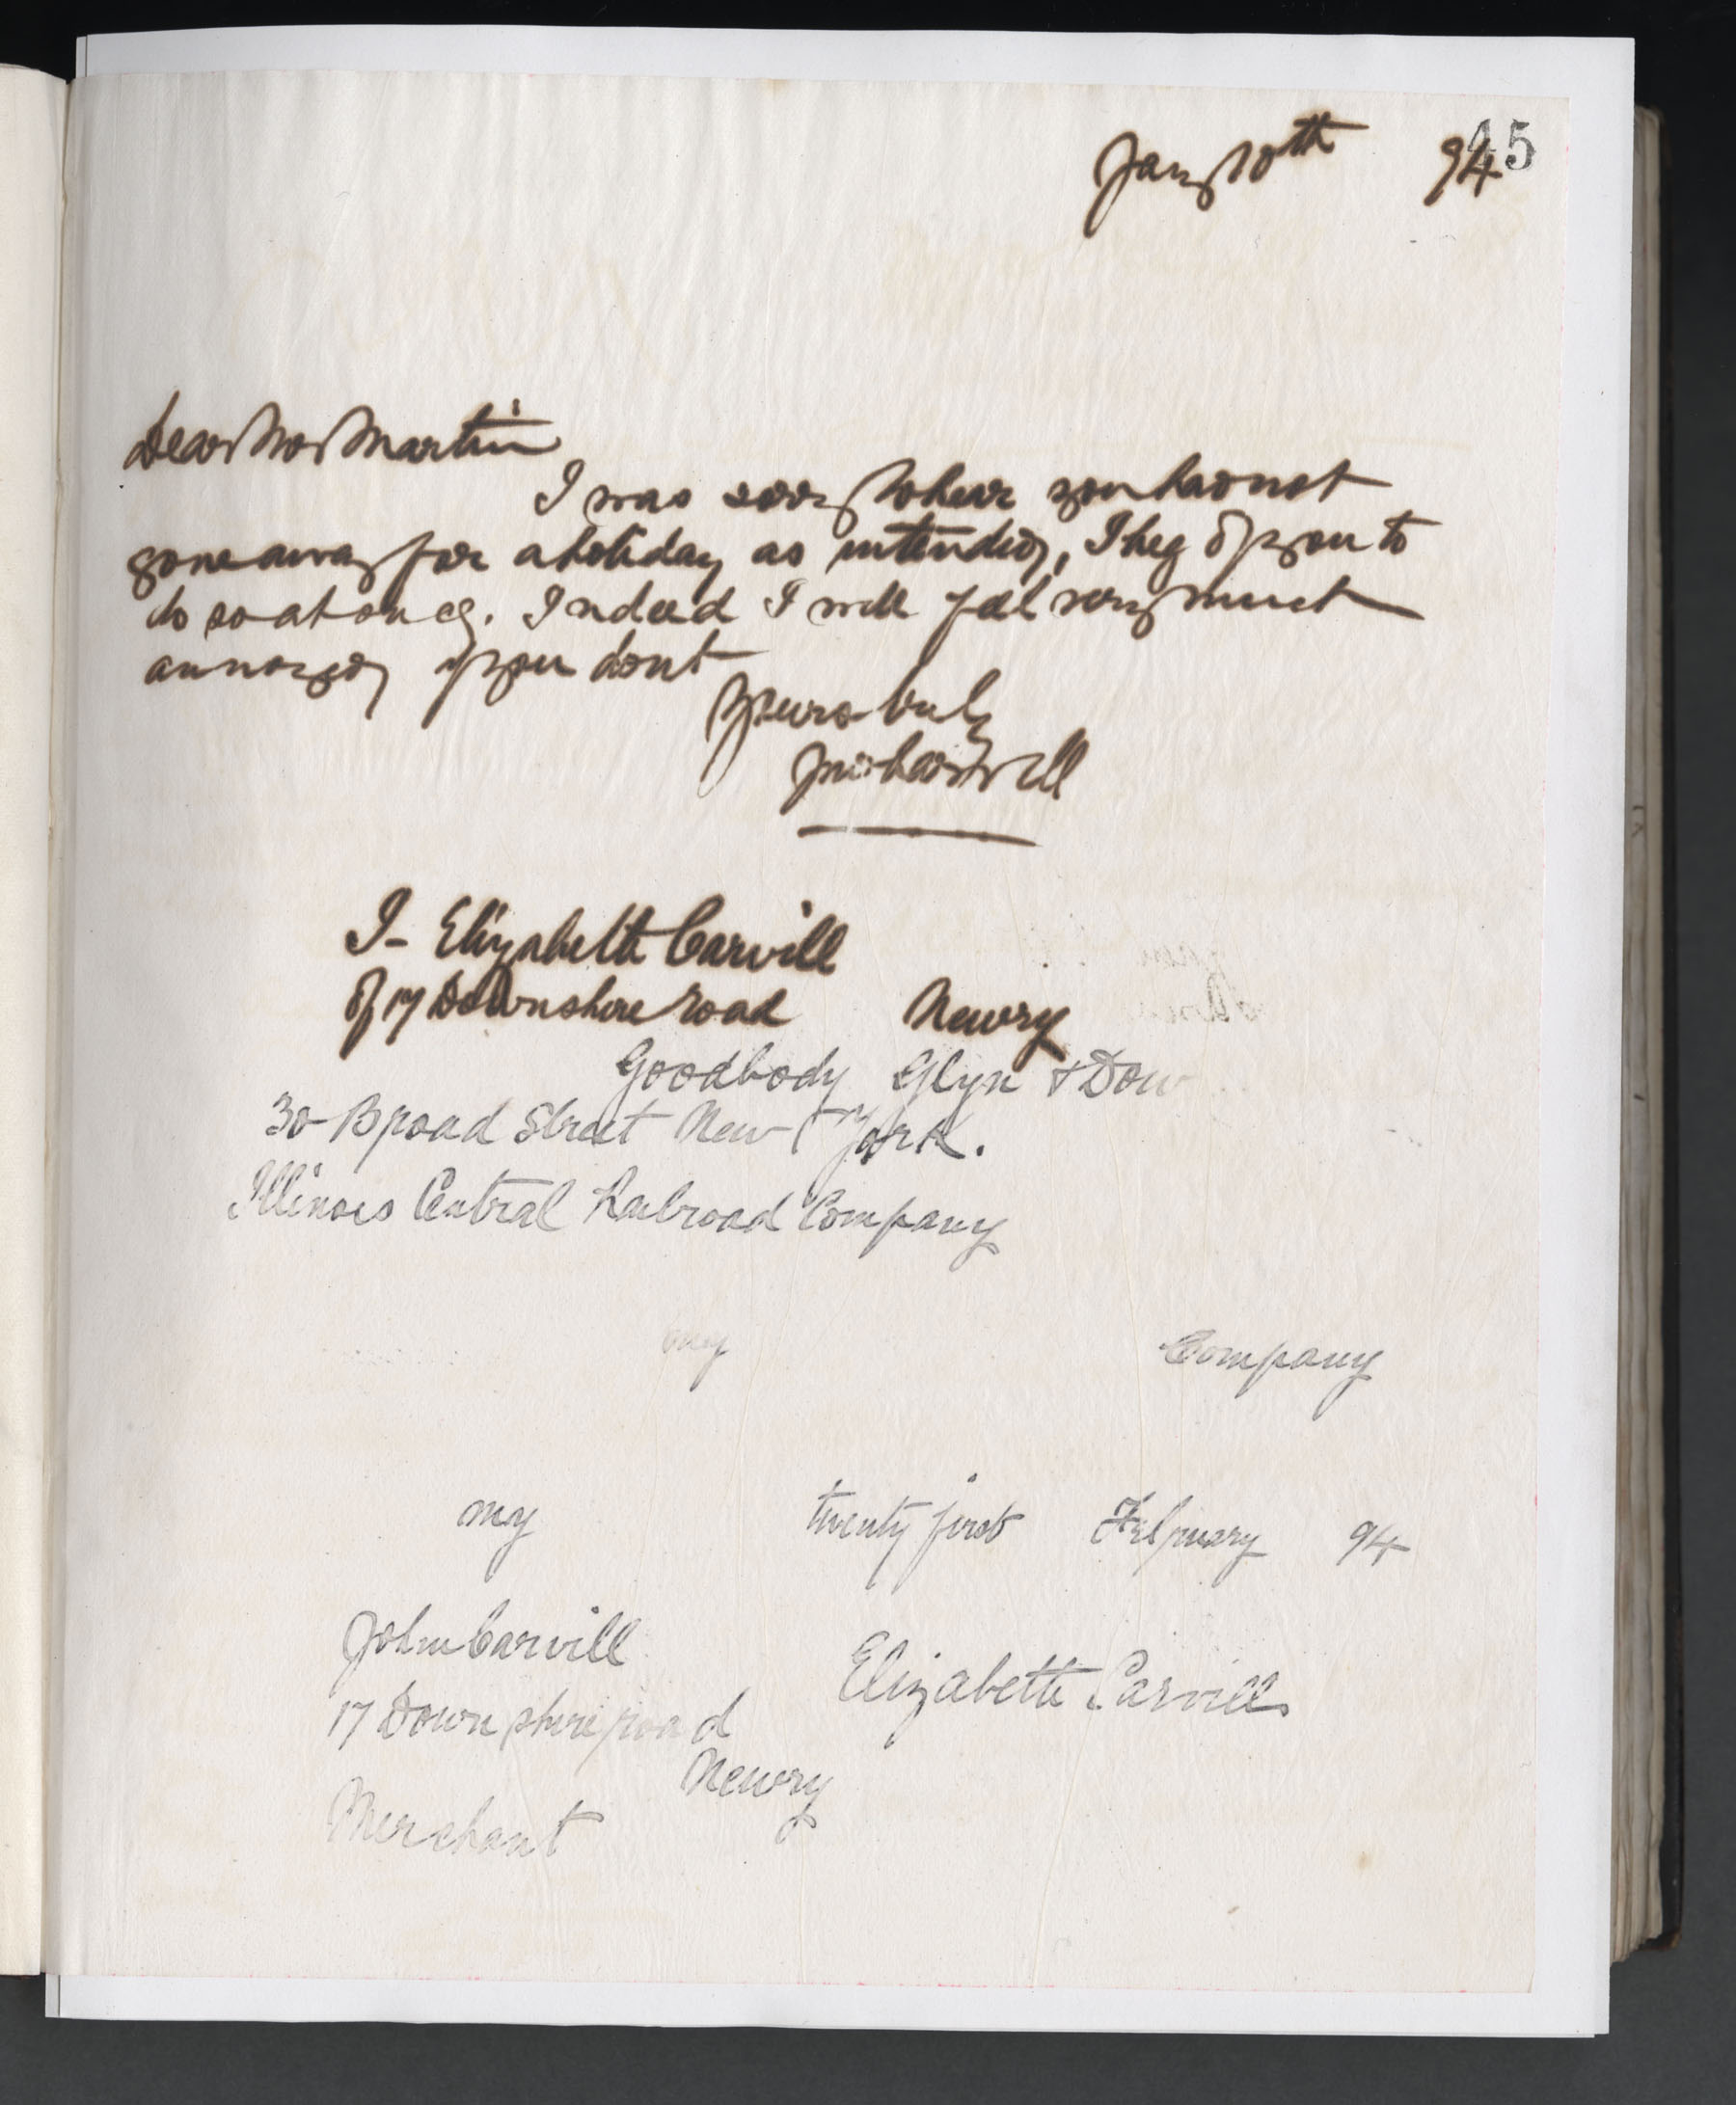 45
Jany 10th 94
Dear Mr Martin
I was sorry to hear you had not
gone away for a holiday as intended, I beg of you to
do so at once. Indeed I will feel very much
annoyed if you dont
Yours truly
Carvill
I - Elizabeth Carvill
of 17 Downshire road Newry
Goodbody Glyn & Dow
30 Broad Street New York.
Illinois Central Railroad Company
my Company
my twenty first February 94
John Carvill
Elizabeth Carvill
17 Downshire road
Newry
Merchant